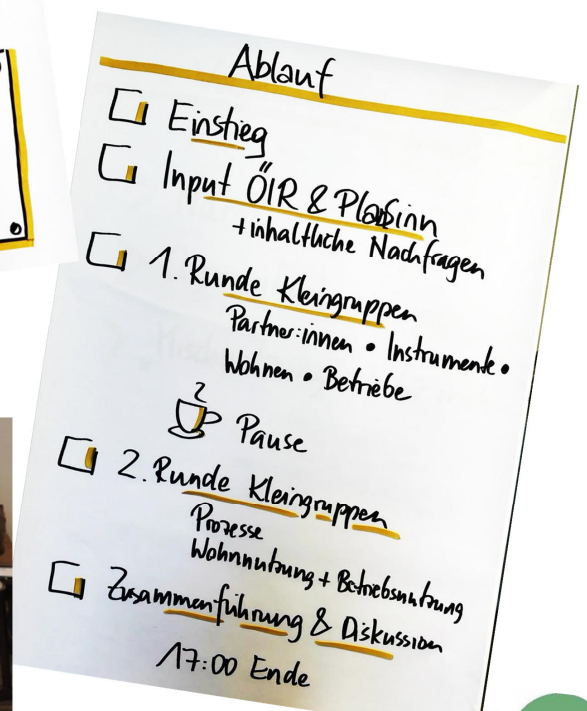 Ablauf
Einstieg
Input ÖIR & Plansinn
+ inhaltliche Nachfragen
1. Runde Kleingruppen
Partner:innen • Instrumente •
Wohnen • Betriebe
Pause
2. Runde Kleingruppen
Prozesse
Wohnnutzung + Betriebsnutzung
Zusammenführung & Diskussion
17:00 Ende